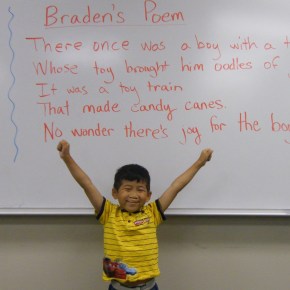 Braden's Poem
There once was a boy with a t
Whose toy brought him oodles of
It was a toy train
That made candy canes.
No wonder there's joy for the boy